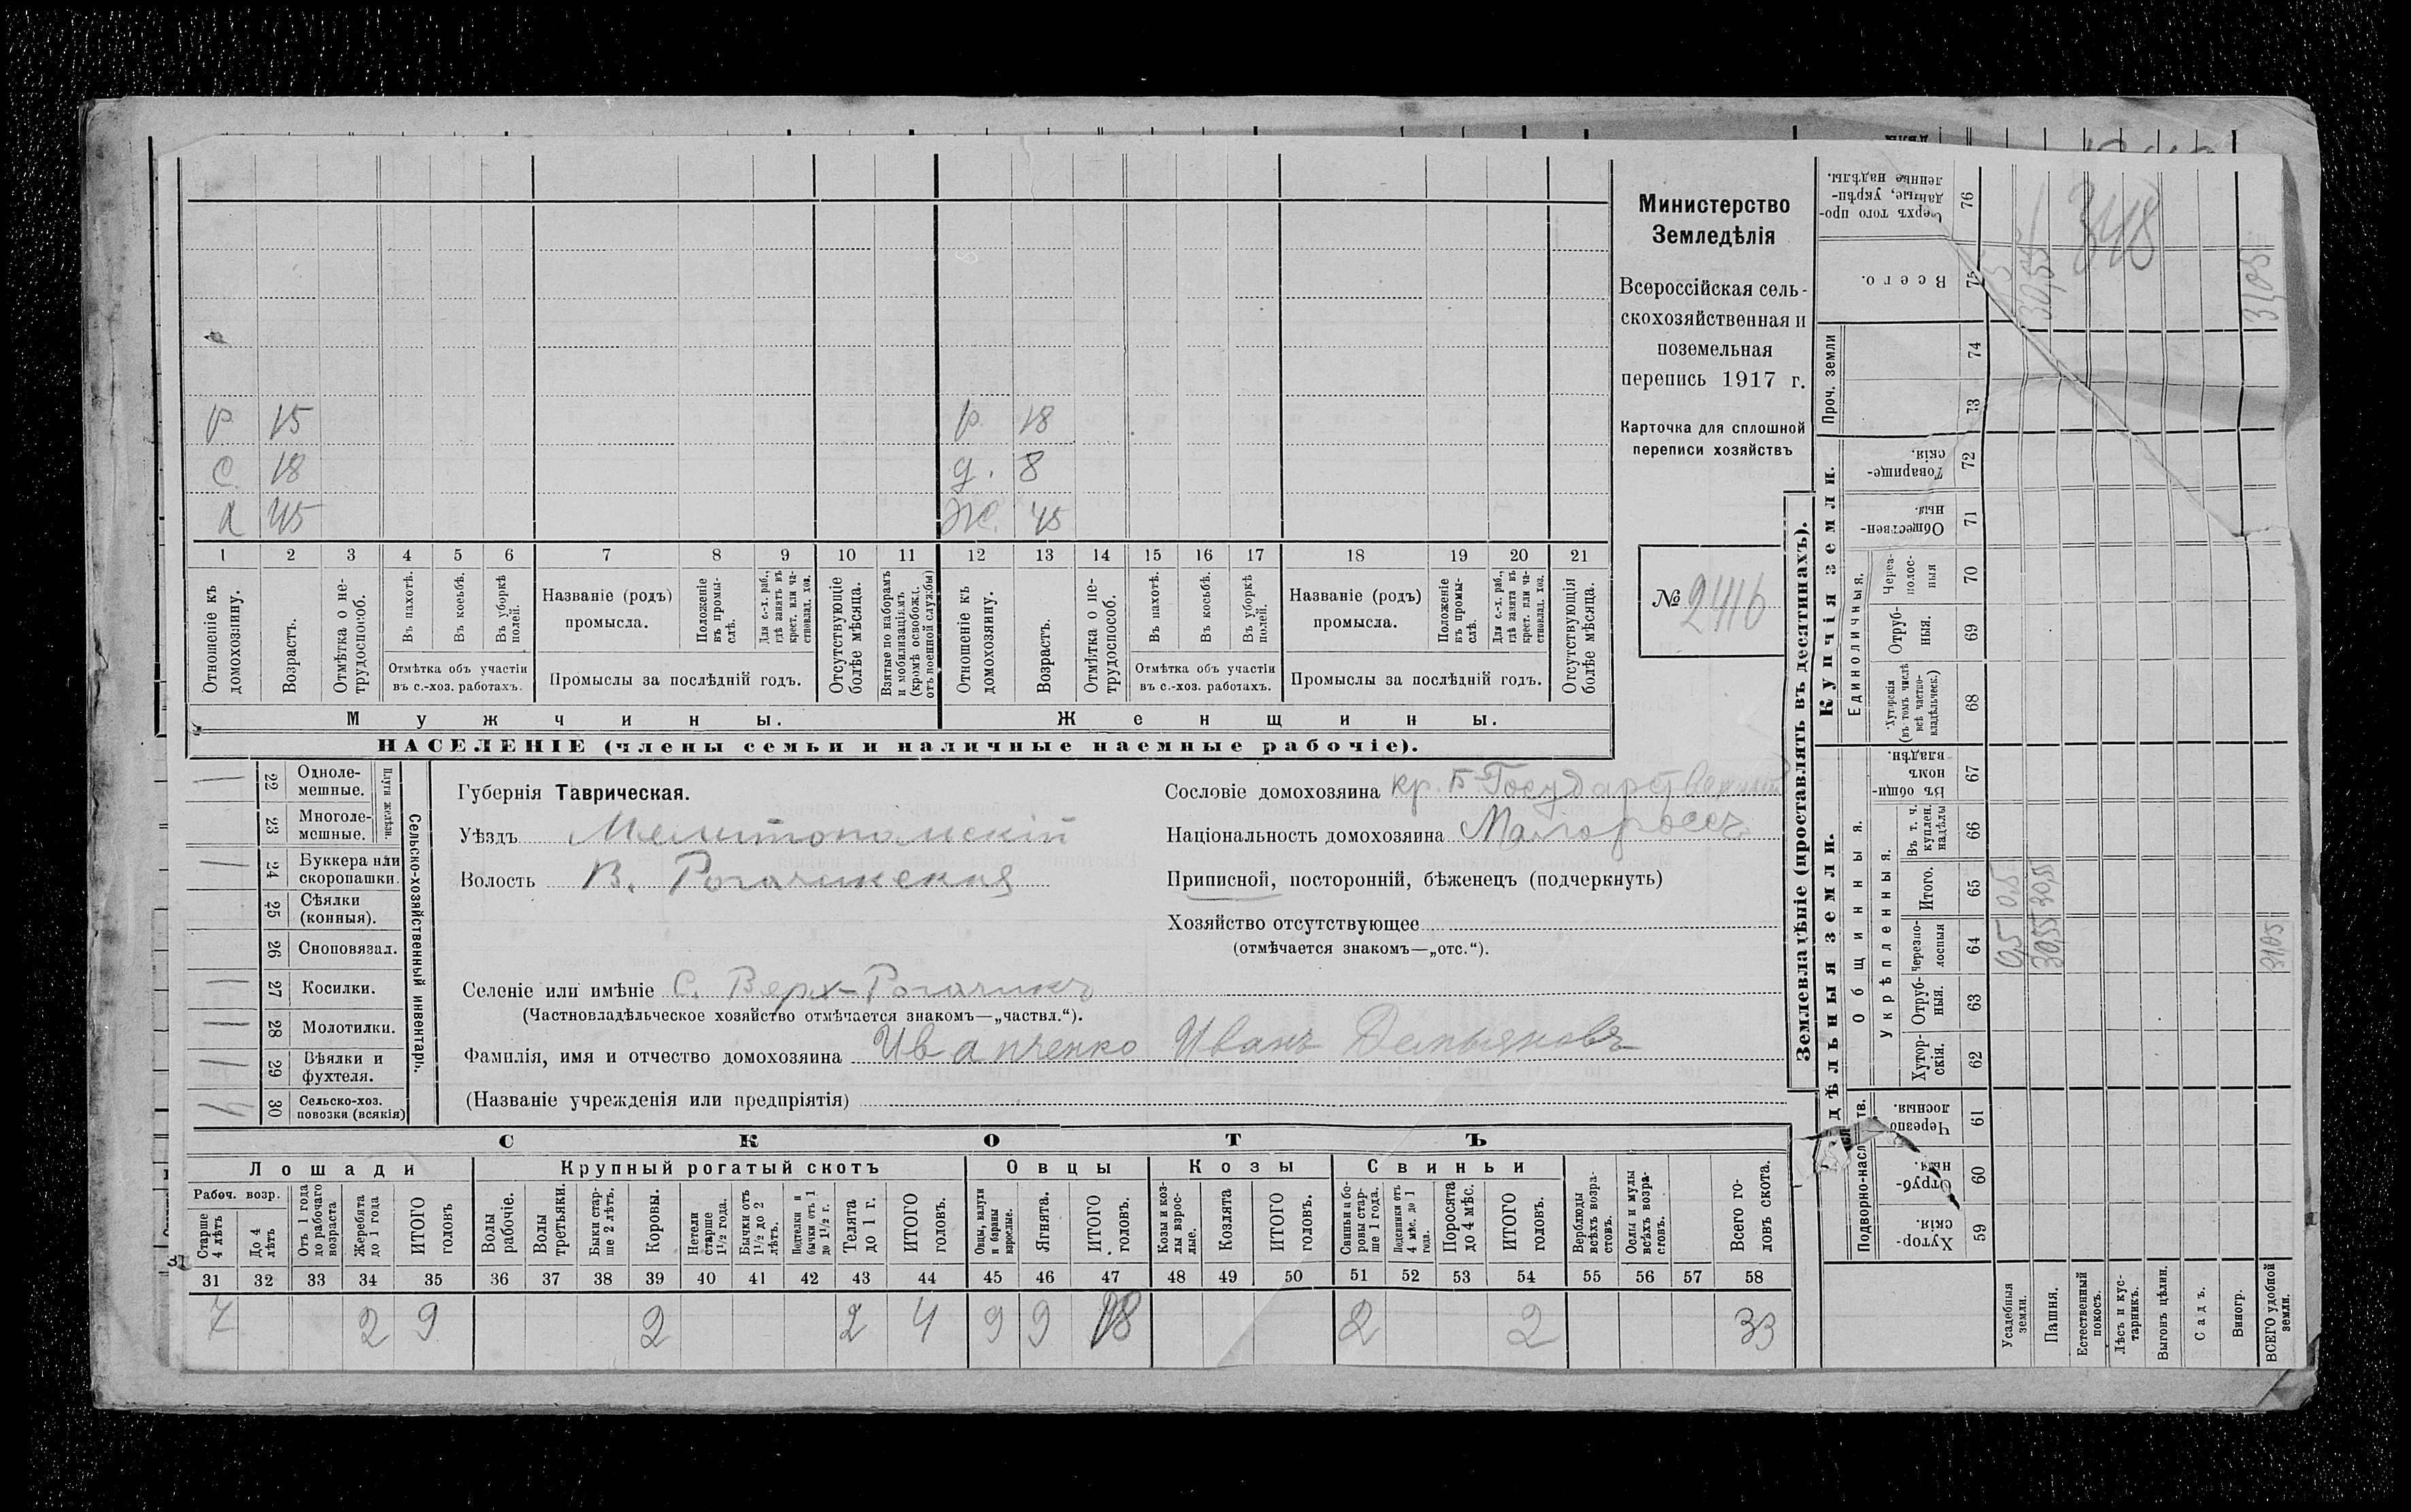 р. 15 р. 18
с. 18 д. 8
х 45 ж. 45
1 2 3 4 5 6 7 8 9 10 11 12 13 14 15 16 17 18 19 20 21
Отношеніе къ домохозяину.
Возрастъ.
Отмѣтка о не-
трудоспособ.
Въ пахотѣ.
Въ косьбѣ.
Въ уборкѣ
полей.
Отмѣтка объ участіи
въ с.-хоз. работахъ.
Названіе (родъ)
промысла.
Положеніе
въ промы-
слѣ.
Для с.-х. раб.,
гдѣ занятъ въ
крест. или ча-
стновлад. хоз.
Промыслы за послѣдній годъ.
Отсутствующіе
болѣе мѣсяца.
Взятые по наборамъ
и мобилизаціямъ
(кромѣ освобожд.
отъ военной службы)
Отношеніе къ
домохозяину.
Возрастъ.
Отмѣтка о не-
трудоспособ.
Въ пахотѣ.
Въ косьбѣ.
Въ уборкѣ
полей.
Отмѣтка объ участіи
въ с.-хоз. работахъ.
Названіе (родъ)
промысла.
Положеніе
въ промы-
слѣ.
Для с.-х. раб.,
гдѣ занята въ
крест. или ча-
стновлад. хоз.
Промыслы за послѣдній годъ.
Отсутствующія
болѣе мѣсяца.
Мужчины. Женщины.
НАСЕЛЕНІЕ (члены семьи и наличные наемные рабочіе).
Министерство
Земледѣлія
Всероссійская сель-
скохозяйственная и
поземельная
перепись 1917 г.
Карточка для сплошной
переписи хозяйствъ
№ 2416
1 22 Одноле-
мешные.
23 Многоле-
мешные.
Плуги желѣзн.
1 24 Буккера или
скоропашки.
25 Сѣялки
(конныя).
26 Сноповязал.
1 27 Косилки.
1 28 Молотилки.
1 29 Вѣялки и
фухтеля.
30 Сельско-хоз.
повозки (всякія)
Сельско-хозяйственный инвентарь.
Губернія Таврическая.
Уѣздъ Мелитопольскій
Волость В. Рогачикская
Селеніе или имѣніе С. Верх-Рогачикъ
(Частновладѣльческое хозяйство отмѣчается знакомъ—„частвл.“).
Фамилія, имя и отчество домохозяина Иванченко Иванъ Демьяновъ
(Названіе учрежденія или предпріятія)
Сословіе домохозяина кр. Б Государственный
Національность домохозяина Малороссъ
Приписной, посторонній, бѣженецъ (подчеркнуть)
Хозяйство отсутствующее
(отмѣчается знакомъ—„отс.“).
СКОТЪ
Лошади Крупный рогатый скотъ Овцы Козы Свиньи
Рабоч. возр.
Старше
4 лѣтъ
До 4
лѣтъ
Отъ 1 года
до рабочаго
возраста
Жеребята
до 1 года
ИТОГО
головъ
Волы
рабочіе.
Волы
третьяки.
Быки стар-
ше 2 лѣтъ.
Коровы.
Нетели
старше
1½ года.
Бычки отъ
1½ до 2
лѣтъ.
Подтелки и
бычки отъ 1
до 1½ г.
Телята
до 1 г.
ИТОГО
головъ.
Овцы, валухи
и бараны
взрослые.
Ягнята.
ИТОГО
головъ.
Козы и коз-
лы взрос-
лые.
Козлята
ИТОГО
головъ.
Свиньи и бо-
ровы стар-
ше 1 года.
Подсвинки отъ
4 мѣс. до 1
года.
Поросята
до 4 мѣс.
ИТОГО
головъ.
Верблюды
всѣхъ возра-
стовъ.
Ослы и мулы
всѣхъ возра-
стовъ.
Всего го-
ловъ скота.
31 32 33 34 35 36 37 38 39 40 41 42 43 44 45 46 47 48 49 50 51 52 53 54 55 56 57 58
7 2 9 2 2 4 9 9 18 2 2 33
Землевладѣніе (проставлять въ десятинахъ).
Купчія земли.
Надѣльныя земли.
Сверхъ того про-
данные, укрѣп-
ленные надѣлы.
76
348
Всего.
75
0,5 30,55 31,05
Проч. земли
74
73
Товарище-
скія.
72
Обществен-
ныя.
71
Единоличныя.
Через-
полос-
ныя
70
Отруб-
ныя.
69
Хуторскія
(въ томъ числѣ
всѣ частно-
владѣльческ.)
68
Общинныя.
Въ общи-
номъ
владѣн.
67
Укрѣпленныя.
Въ т. ч.
куплен.
надѣлы
66
Итого.
65
0,5 30,55
Черезпо-
лосныя
64
0,5 30,55 31,05
Отруб-
ныя.
63
Хутор-
скія.
62
Подворно-наслѣдств.
Черезпо-
лосныя.
61
Отруб-
ныя.
60
Хутор-
скія.
59
Усадебныя
земли.
Пашня.
Естественный
покосъ.
Лѣсъ и кус-
тарникъ.
Выгонъ цѣлин.
Садъ.
Виногр.
ВСЕГО удобной
земли.